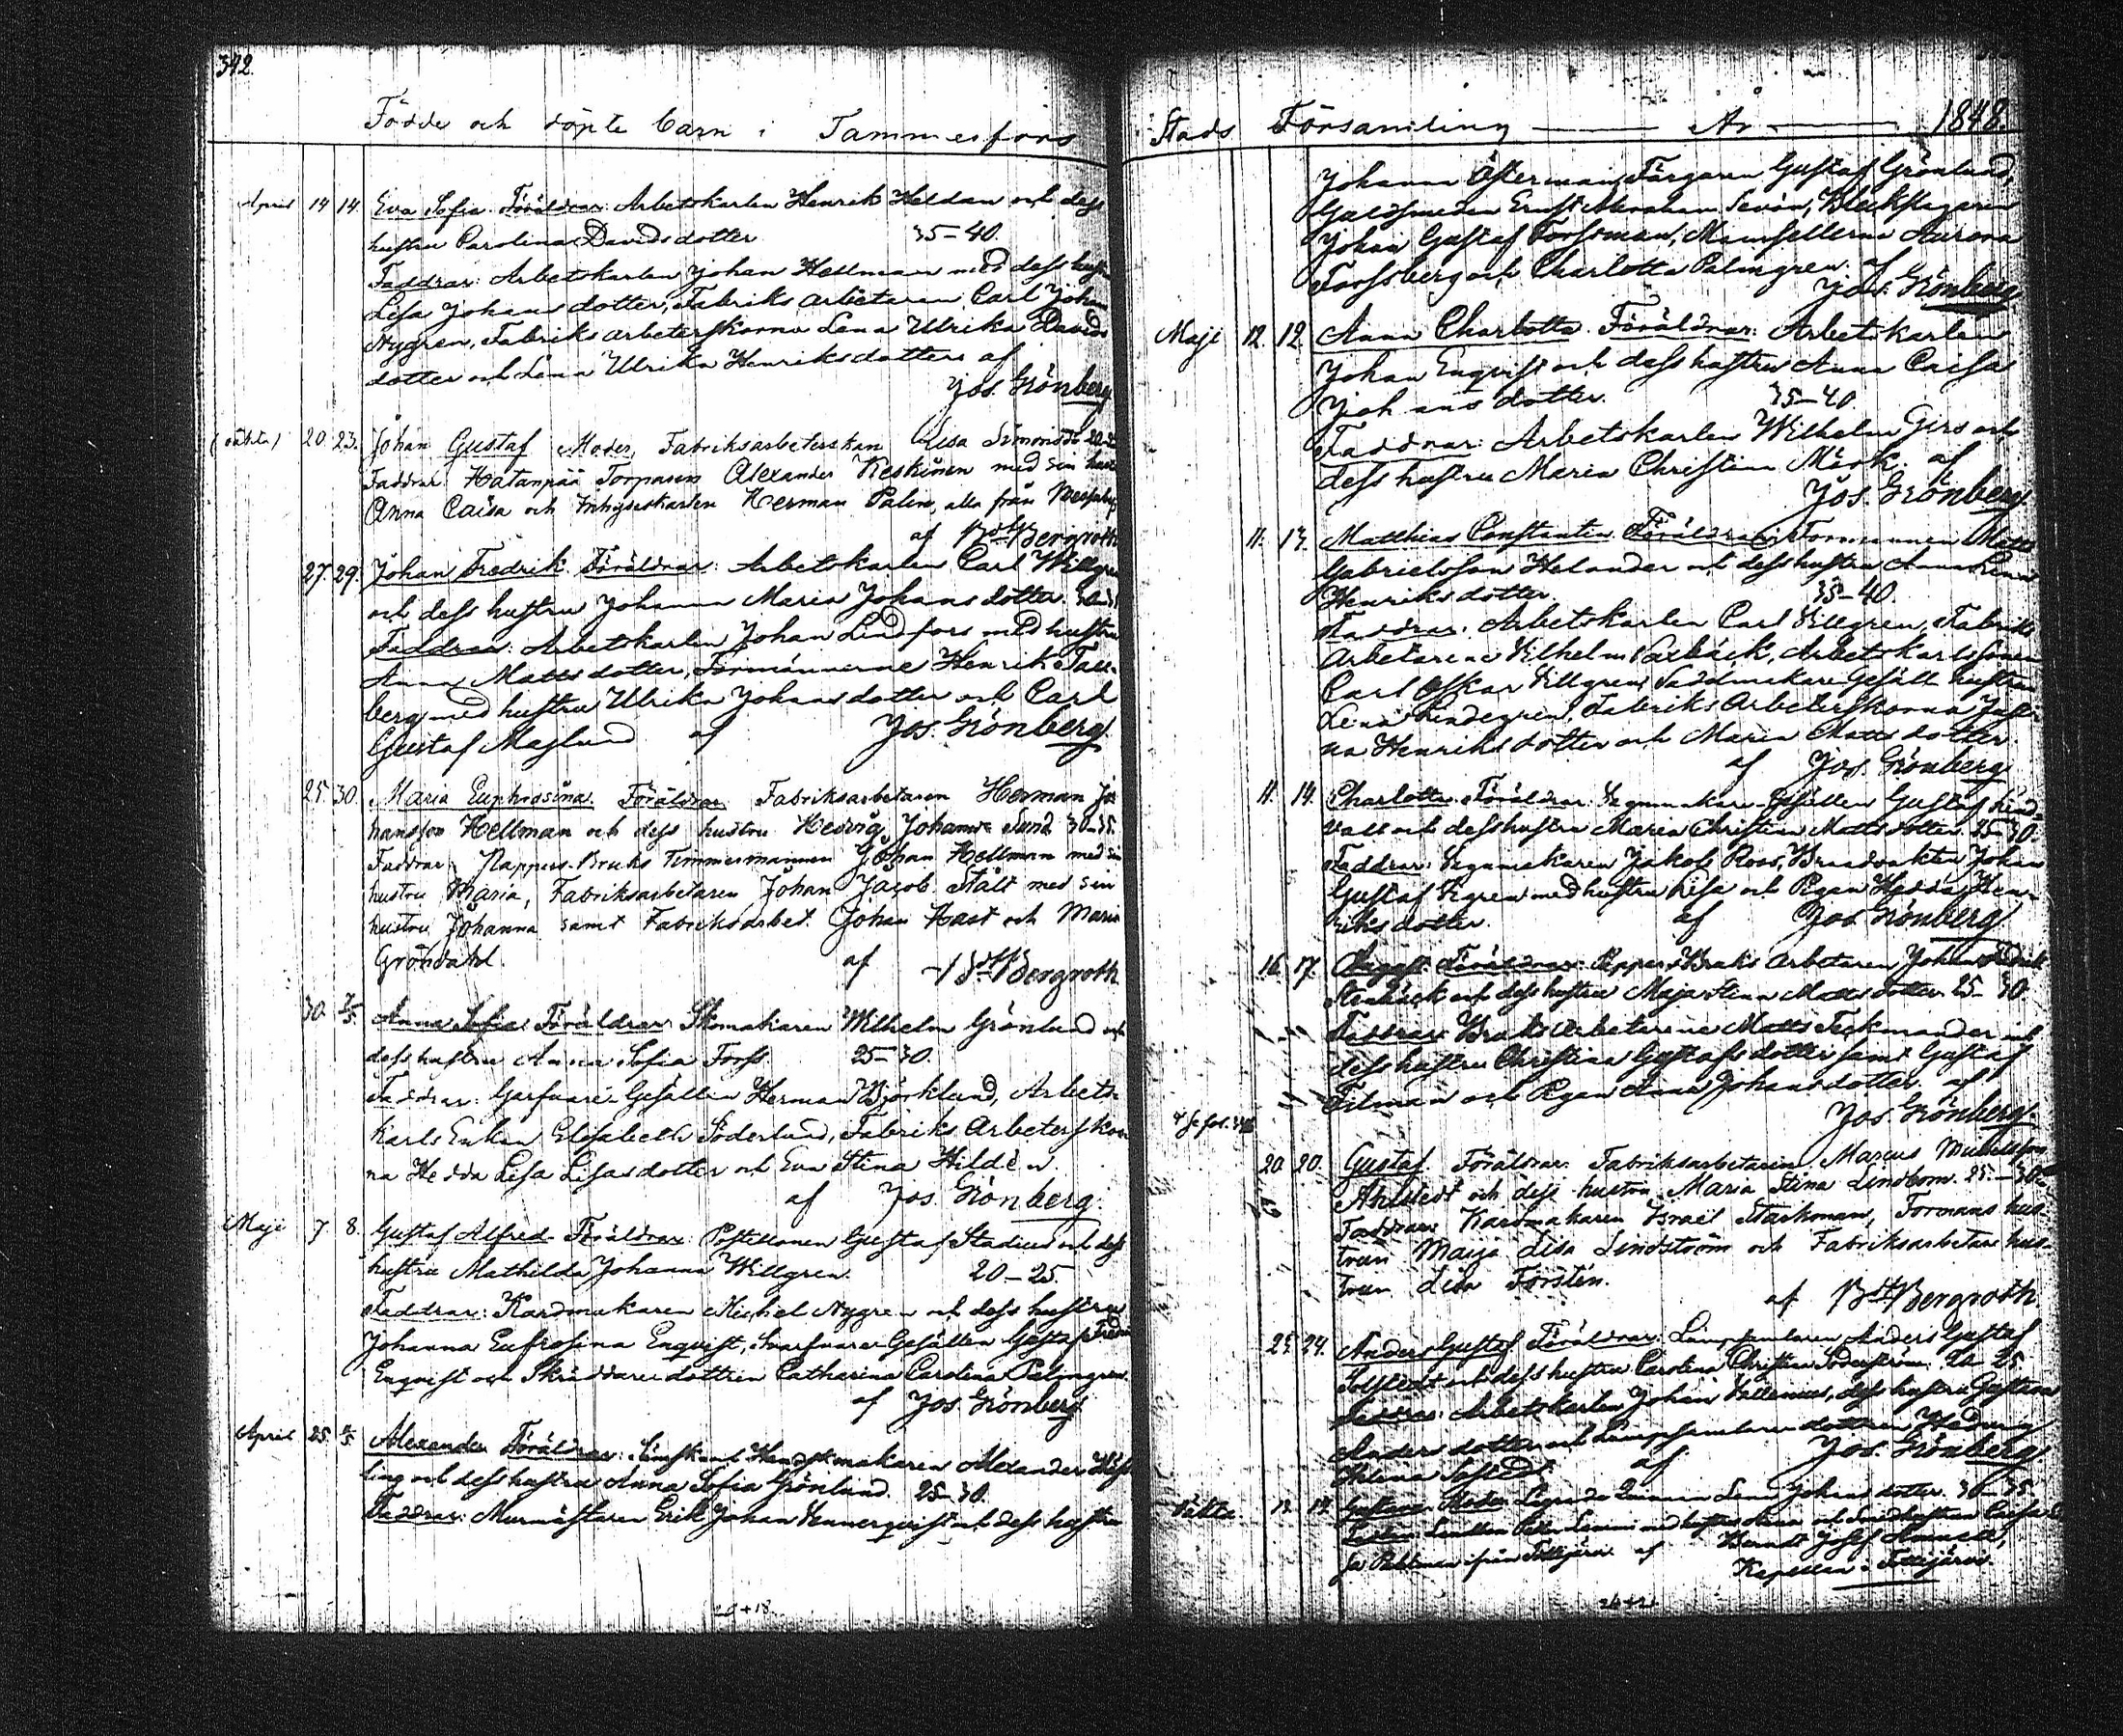 342.
Födde och döpte barn i Tammerfors
April 14 14. Eva Sofia. Föräldrar: Arbetskarlen Henrik Heldan och dess
hustru Carolina Davidsdotter 35-40.
Faddrar: Arbetskarlen Johan Hellman med dess hustru
Lisa Johansdotter, Fabriks arbetaren Carl Johan
Nygren, Fabriks arbeterskorna Lena Ulrika Davids
dotter och Lena Ulrika Henriksdotter af
Jos. Grönberg
(oäkta) 20. 23. Johan Gustaf Moder, Fabriksarbeterskan Lisa Simonsdr
Faddrar: Hatanpää Torparen Alexander Keskinen med sin
Anna Caisa och Inhyseskarlen Herman Palin, alla från
af Bergroth
27. 29. Johan Fredrik. Föräldrar: Arbetskarlen Carl Willgren
och dess hustru Johanna Maria Johansdotter.
Faddrar: Arbetskarlen Johan Lindfors med hustru
Anna Mattsdotter, Formännerne Henrik Tall-
berg med hustru Ulrika Johansdotter och Carl
Gustaf Maglund af Jos. Grönberg
25. 30. Maria Euphrosina. Föräldrar Fabriksarbetaren Herman Jo
hansson Hellman och dess hustru Hedvig Johansdr Sund 30-35.
Faddrar: Pappers-Bruks Timmermannen Johan Hellman med sin
hustru Maria, Fabriksarbetaren Johan Jacob Stält med sin
hustru Johanna samt Fabriksarbet. Johan Hast och Maria
Gröndahl. af Bergroth
30. 7/5. Anna Sofia. Föräldrar: Skomakaren Wilhelm Grönlund och
dess hustru Anna Sofia Forss. 25-30.
Faddrar: Garfvare Gesällen Herman Björklund, Arbets-
karls Enkan Elisabeth Söderlund, Fabriks Arbeterskor
na Hedda Lisa Lisasdotter och Eva Stina Hildén.
af Jos. Grönberg.
Maji 7. 8. Gustaf Alfred. Föräldrar: Postillionen Gustaf Stadius och dess
hustru Mathilda Johanna Willgren. 20-25.
Faddrar: Kardmakaren Michel Nygren och dess hustru
Johanna Eufrosina Enqvist, Svarfvare Gesällen Gustaf
Enqvist och Skräddare dottren Catharina Carolina Palmgren.
af Jos. Grönberg
April 25. Alexander. Föräldrar: Handskmakaren Alexander
ling och dess hustru Anna Sofia Grönlund. 25-30.
Faddrar: Murmästaren Erik Johan Wennerqvist och dess hustru
Stads Församling År 1848.
Johanna Österman, Färgaren Gustaf Grönlund,
Guldsmeden Ernst Abraham Sevón, Bleckslagaren
Johan Gustaf Forssman, Mamsellerna Aurora
Forssberg och Charlotta Palmgren. af
Jos. Grönberg
Maji 12. 12. Anna Charlotta. Föräldrar: Arbetskarlen
Johan Enqvist och dess hustru Anna Caisa
Johansdotter. 35-40.
Faddrar: Arbetskarlen Wilhelm Girs och
dess hustru Maria Christina Mörk. af
Jos. Grönberg
11. 13. Matthias Constantin. Föräldrar: Formannen Matts
Gabrielsson Helander och dess hustru Anna Lena
Henriksdotter. 35-40.
Faddrar: Arbetskarlen Carl Willgren, Fabriks
Arbetarene Wilhelm, Arbetskarlssonen
Carl Oskar Willgren, Sadelmakare Gesäll hustrun
Lena Lindegren, Fabriks Arbeterskorna Justi-
na Henriksdotter och Maria Mattsdotter
af Jos. Grönberg
11. 14. Charlotta. Föräldrar: Gesällen Gustaf Lind
vall och dess hustru Maria Christina Mattsdotter. 25-30.
Faddrar: Jakob Roos, Brandvakten Johan
Gustaf Vigren med hustru Lisa och Pigan Hedda Hen-
riksdotter. af Jos. Grönberg
16. 17. August. Föräldrar: Pappers Bruks Arbetaren Johan Fredrik
Stenbäck och dess hustru Maja Stina Mattsdotter. 25-30.
Faddrar: Bruks Arbetarene Matts Teckmander och
dess hustru Christina Gustafsdotter samt Gustaf
Filman och Pigan Anna Johansdotter. af
Jos. Grönberg.
20. 20. Gustaf. Föräldrar: Fabriksarbetaren Marcus Michelsson
Ahlstedt och dess hustru Maria Stina Lindbom. 25.-30.
Faddrar: Kardmakaren Israel Starkman, Formans hus-
trun Maija Lisa Lindström och Fabriksarbetare hus-
trun Lisa Forstén.
af Bergroth
23. 24. Anders Gustaf. Föräldrar: Anders Gustaf
och dess hustru Carolina Christina Söderström. 20-25.
Faddrar: Arbetskarlen Johan, dess hustru Gustava
Andersdotter och dottren Hedvig
Helena af Jos. Grönberg
Oäkta. 13. 14. Gustava. Moder: Lena Johansdotter. 30-35.
med hustru Anna och
ifrån Tottijärvi af Berndt Josef
Kapellan i Tottijärvi.